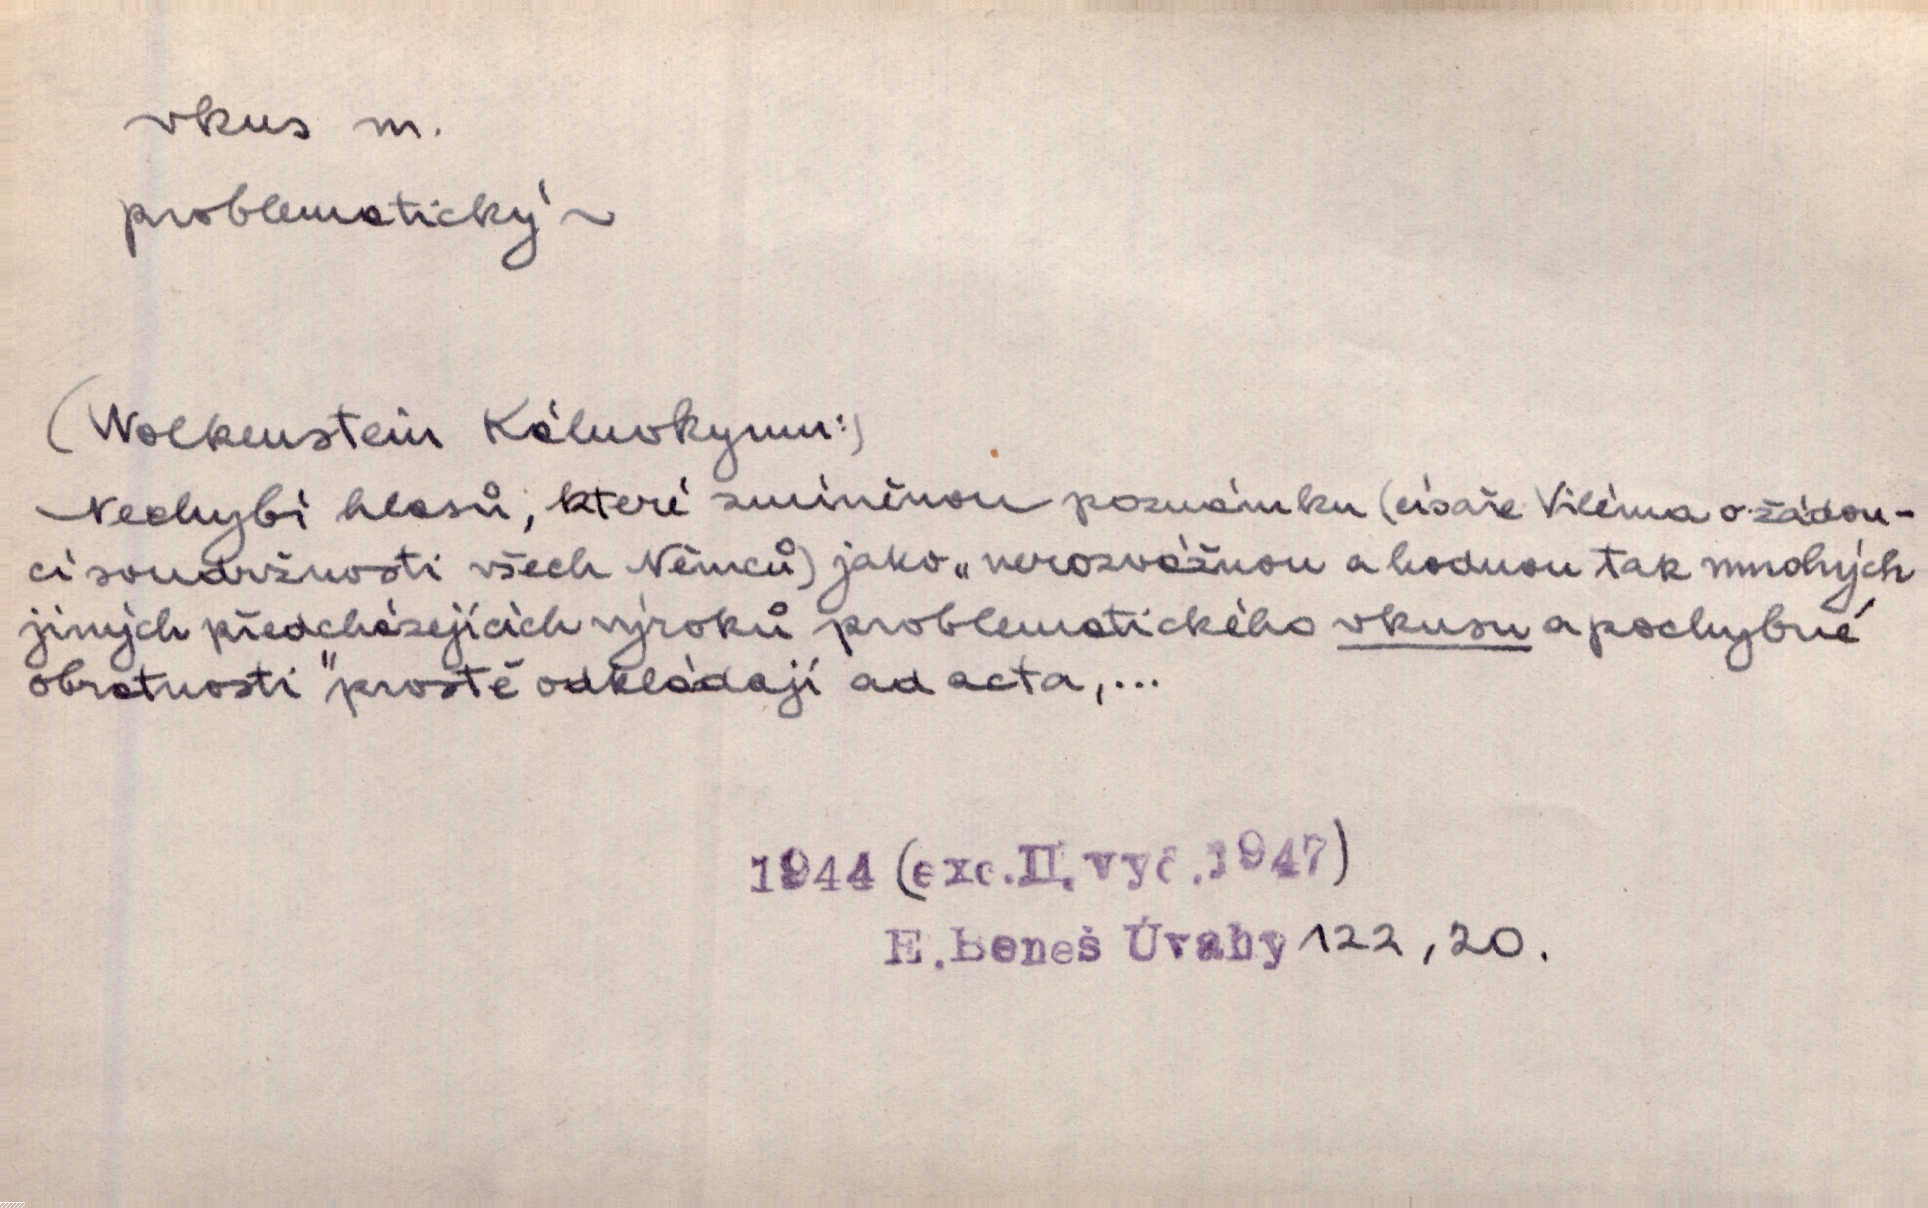 vkus m.
problematický ~
(Wolkenstein Kálnokymu:)
Nechybí hlasů, které zmíněnou poznámku (císaře Viléma o žádou-
cí soudržnosti všech Němců) jako „nerozvážnou a hodnou tak mnohých
jiných předcházejících výroků problematického vkusu a pochybné
obratnosti" prostě odkládají ad acta,...
1944 (exc. II. vyd. 1947)
E. Beneš Úvahy 122, 20.